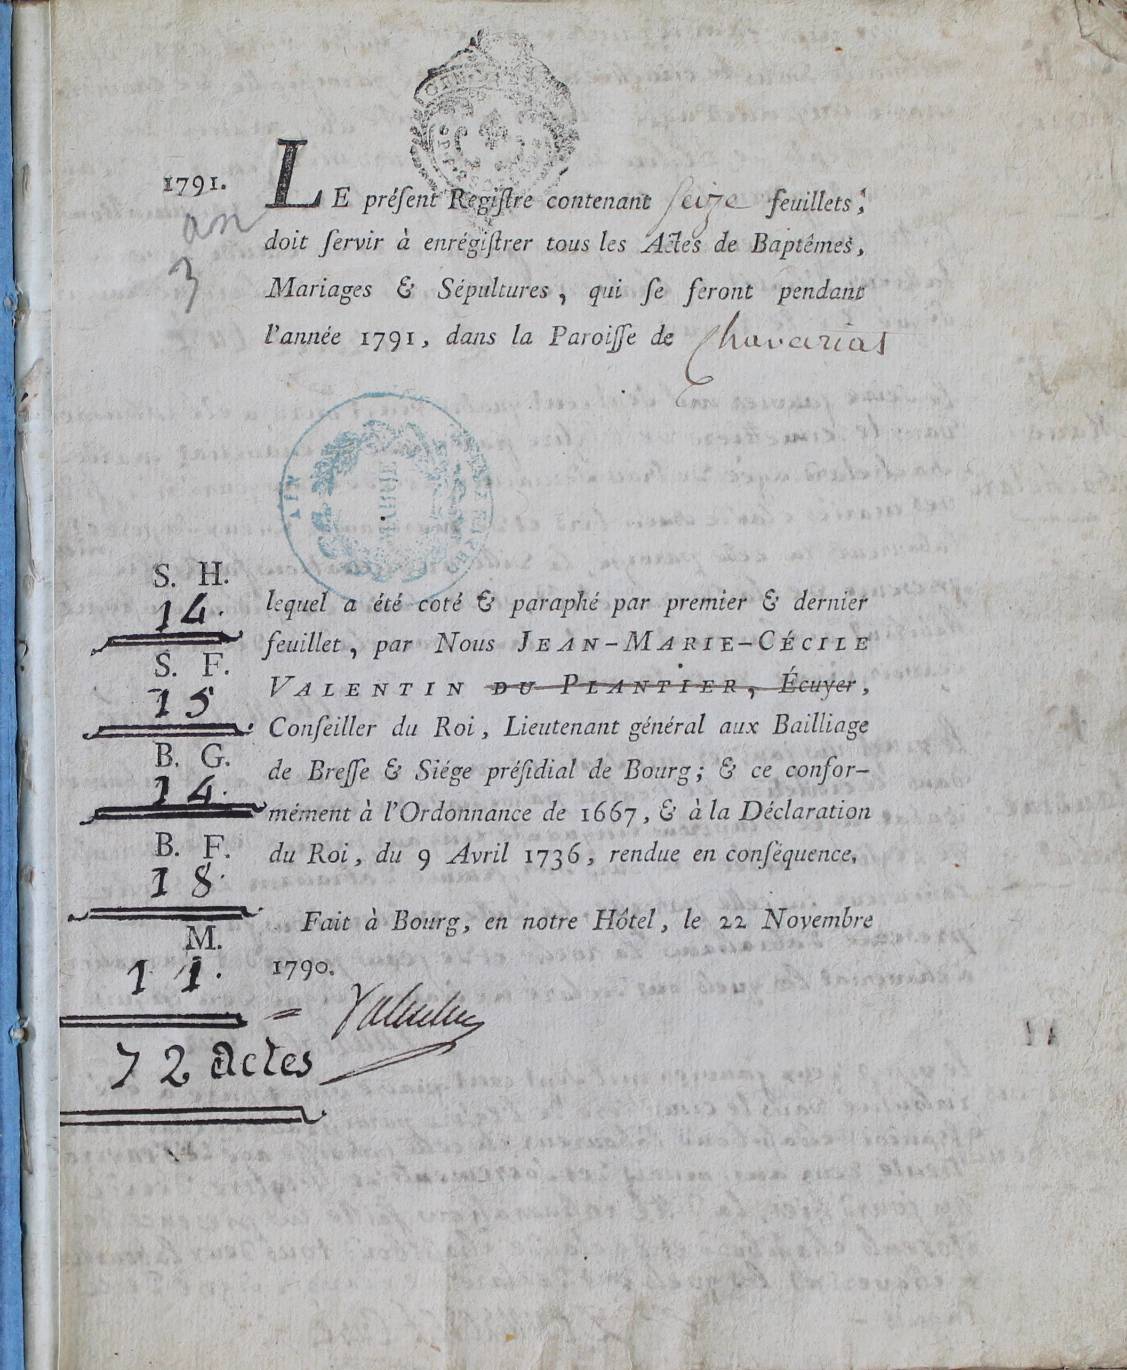 1791.
an
3
LE préſent Regiſtre contenant ſeize feuillets,
doit ſervir à enrégiſtrer tous les Actes de Baptêmes,
Mariages & Sépultures, qui ſe feront pendant
l'année 1791, dans la Paroiſſe de Chavarias
AIN
S. H.
14.
S. F.
15
B. G.
14.
B. F.
18.
M.
11.
72 actes
lequel a été coté & paraphé par premier & dernier
feuillet, par Nous JEAN-MARIE-CÉCILE
VALENTIN DU PLANTIER, Écuyer,
Conſeiller du Roi, Lieutenant général aux Bailliage
de Breſſe & Siége préſidial de Bourg; & ce confor-
mément à l'Ordonnance de 1667, & à la Déclaration
du Roi, du 9 Avril 1736, rendue en conſéquence,
Fait à Bourg, en notre Hôtel, le 22 Novembre
1790.
Valentin